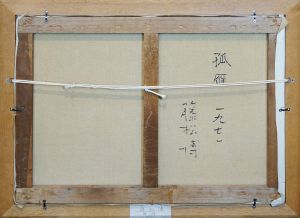 孤雁 一九七一
藤松博